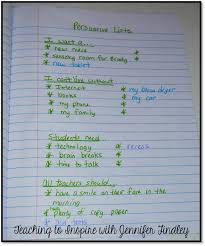 Persuasive Lists
I want a....
* new nook
* sensory room for Brady
* new tablet
I can't live without....
* Internet * my blow dryer
* books * my car
* my phone
* my family
Students need
* technology * recess
* brain breaks
* time to talk
All teachers should....
* have a smile on their face in the
morning
* plenty of copy paper
Teaching to Inspire with Jennifer Findley